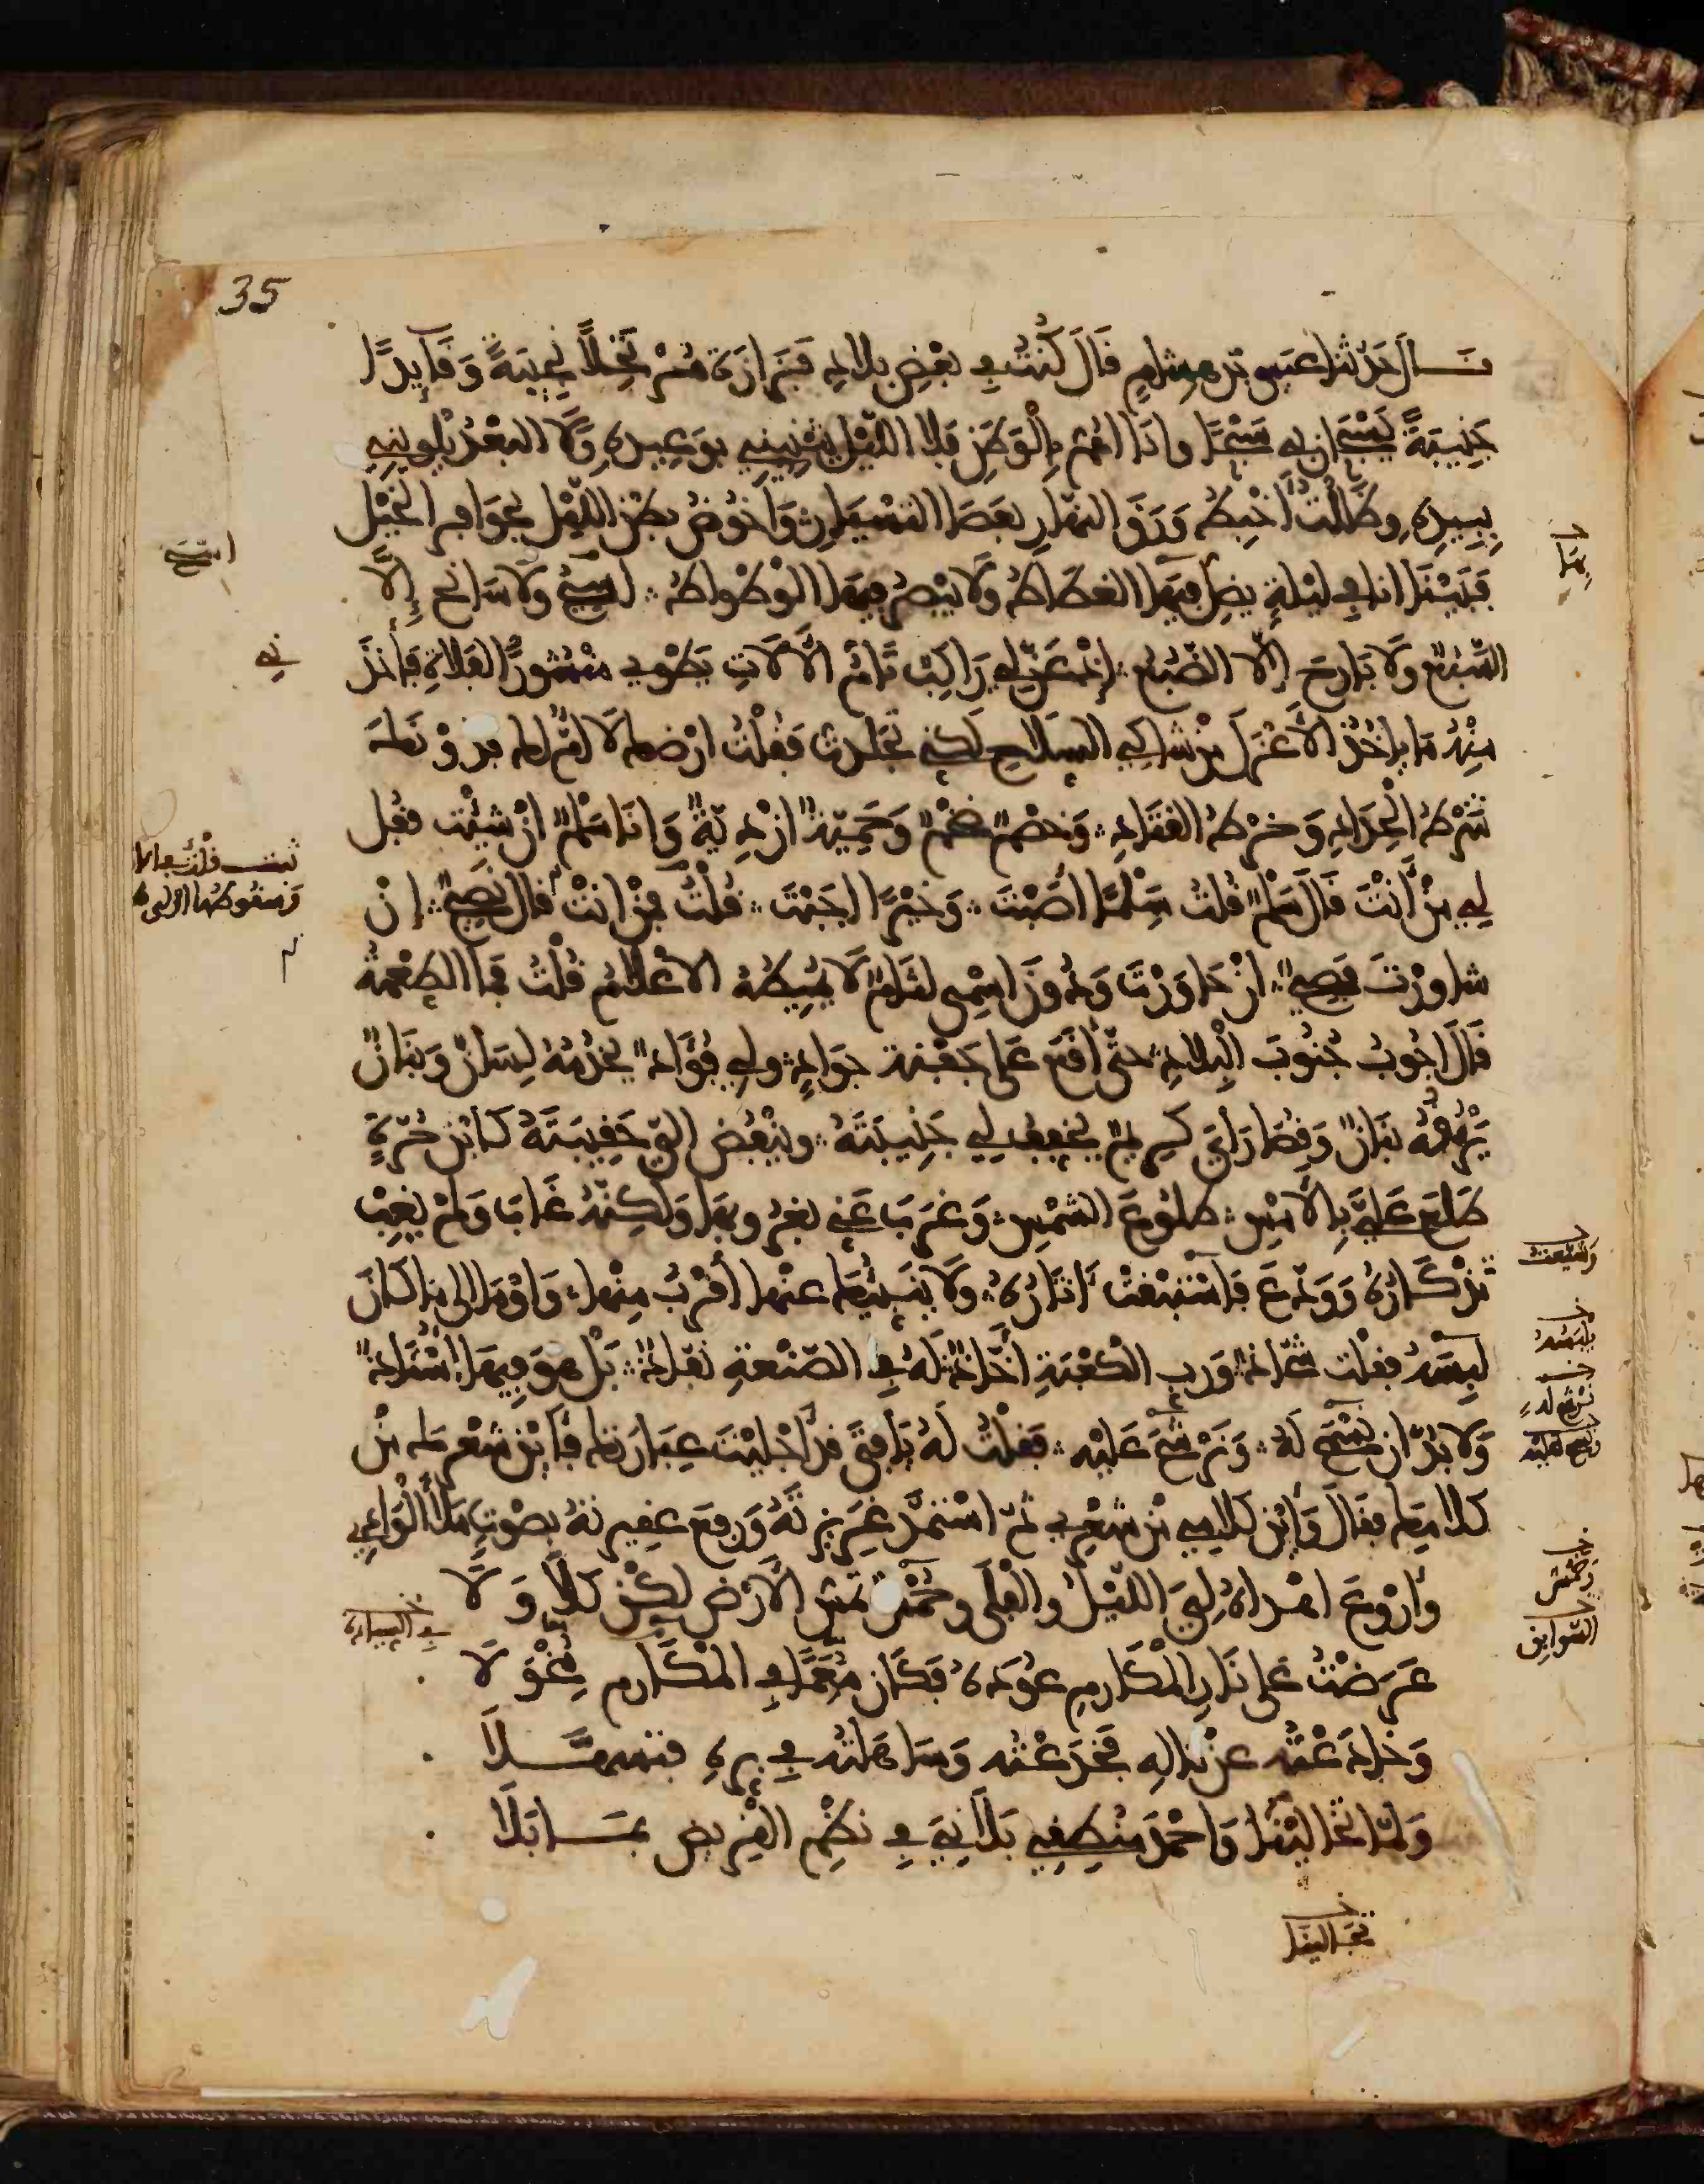 35
قـــال حدثنا عيسى بن هشام قَالَ كُنْتُ في بَعْضِ بلادِ فَزَارَةَ مُرْتَحِلاً نَجِيبَةً وَقَايِدًا
جَنِيبَةً يَسْبَحَانِ بي سَبْحًا وانَا اهُمُّ بالْوَطَنِ فلا الليْلُ يَثْنِينِي بوَعِيدِهِ وَلَا البُعْدُ يَلْوِينِي
بِبِيدِهِ وظَلِلْتُ أَخْبِطُ وَرَقَ النهَارِ بعَصَا التسْيَارِ وَأَخُوضُ بَطْنَ الليْلِ بحَوَافِرِ الخيْلِ
فَبَيْنَا انا في لَيْلَةٍ يضِلُّ فيهَا الغطَاطُ وَلَا يُبْصِرُ فيهَا الوَطْوَاطُ لا سَيْحٌ وَلَا سَانِحَ إِلَّا
السَّبُعُ وَلَا بَارِحَ إلّا الضَّبُعُ إذْ عَنَّ لي رَاكِبٌ تَامُّ الْآلَاتِ يَطْوِي مَنْشُورَ الفَلَاةِ فَأَخَذَنِي
مِنْهُ مَا يأخُذُ الأَعْزَلَ مِنْ شاكِي السِلَاحِ لكني تجَلدتُ فَقُلْتُ ارْضَك لَا أُمَّ لك فدُونَكَ
شَرْطُ الْحِدَادِ وَخَرْطُ القَتَادِ وَخَصْمٌ ضَخْمٌ وَحَمِيّةٌ ازْدِيَّةٌ وَانَا سِلْمٌ انْ شِئْتَ فقُل
لي مَنْ أَنْتَ قَالَ سِلْمٌ قُلْتُ سِلْمًا أَصَبْتَ وَخَيْرًا اجَبْتَ قُلْتُ فمَنْ انتَ قال نَصِيحٌ إنْ
شاورْتَ فَصِيحٌ انْ حَاوَرْتَ وَدُونَ اسْمِي لثَامٌ لَا تُمِيطُهُ الأعْلَامُ قُلْتُ فَما الطِعْمَةُ
قَالَ اجُوبُ جُيُوبَ الْبلادِ حتَّى أَقَعَ عَلَى جَفْنَةِ جَوَادٍ ولي فُؤَادٌ يخْدُمُهُ لِسَانٌ وَبَيَانٌ
يَرْقُمُهُ بَنَانٌ وَقُصَارَايَ كَرِيمٌ يُخَفِّفُ لي جَنِيبَتَهُ وينْفُضُ الَيَّ حَقِيبَتَهُ كَابْنِ حُرَّةٍ
طَلَعَ عَلَيَّ بِالأَمْسِ طُلُوعَ الشَمْسِ وَغَرَبَ عَنِّي بغُرُوبهَا وَلَكِنّهُ غَابَ وَلَمْ يَغِبْ
تَذْكَارُهُ وَوَدَّعَ فَاسْتَبَعَتْ اثَارُهُ وَلَا يُنَبِّئُكَ عنْها أَقْرَبُ مِنْها وَاوْمَا إلى ما كَانَ
لَبِسَهُ فقُلْت شَحّاذٌ وَرَبِ الكَعْبَةِ أَخَّاذٌ لَهُ في الصَّنْعةِ نفَاذٌ بَلْ هوَ فيهَا أُسْتَاذٌ
وَلا بُدَّ ان تَسُحَّ لَهُ وَتَرْشَحَ عَليْهِ فقُلْتُ لَهُ يَا فَتًى قدْ أَجْلَيْتَ عِبَارَتَكَ فَأَيْنَ شِعْرُكَ مِنْ
كَلَامِكَ فقَالَ وَأَيْنَ كَلَامِي مِنْ شِعْرِي ثمّ اسْتَمَدَّ غَرِيزَتَهُ وَرفعَ عقِيرتَهُ بصَوْتٍ مَلَأَ الْوَادِي
وَأَرْوَعَ اهْدَاهُ لِيَ اللّيْلُ والفَلَى وخَمْسٌ تَمَسُّ الأَرْضَ لكِنْ كَلَّا وَلَا
عَرَضْتُ عَلَى نَارِ المَكَارِمِ عُودَهُ فَكَانَ مُعَمًّا في المَكَارِمِ مُخْوَلَا
وَخَادَعْتُهُ عن مَالِهِ فخَدَعْتُه وَسَاهَلتُه في بِرِّهِ فتَسَهَّــلَا
وَلَمّا تجَاليْنَا وَاحْمَدَ مَنْطِقي بَلَانِيَ في نَظْمِ القَرِيضِ بمَــا بَلَا
بهَا
وَشَيّعَتْ
يلبسه
ترشح له
وتسح عليه
وخمس
السّوابق
ني
ثبت
وسقوطها اولى
في السيادة
تجَالينَا